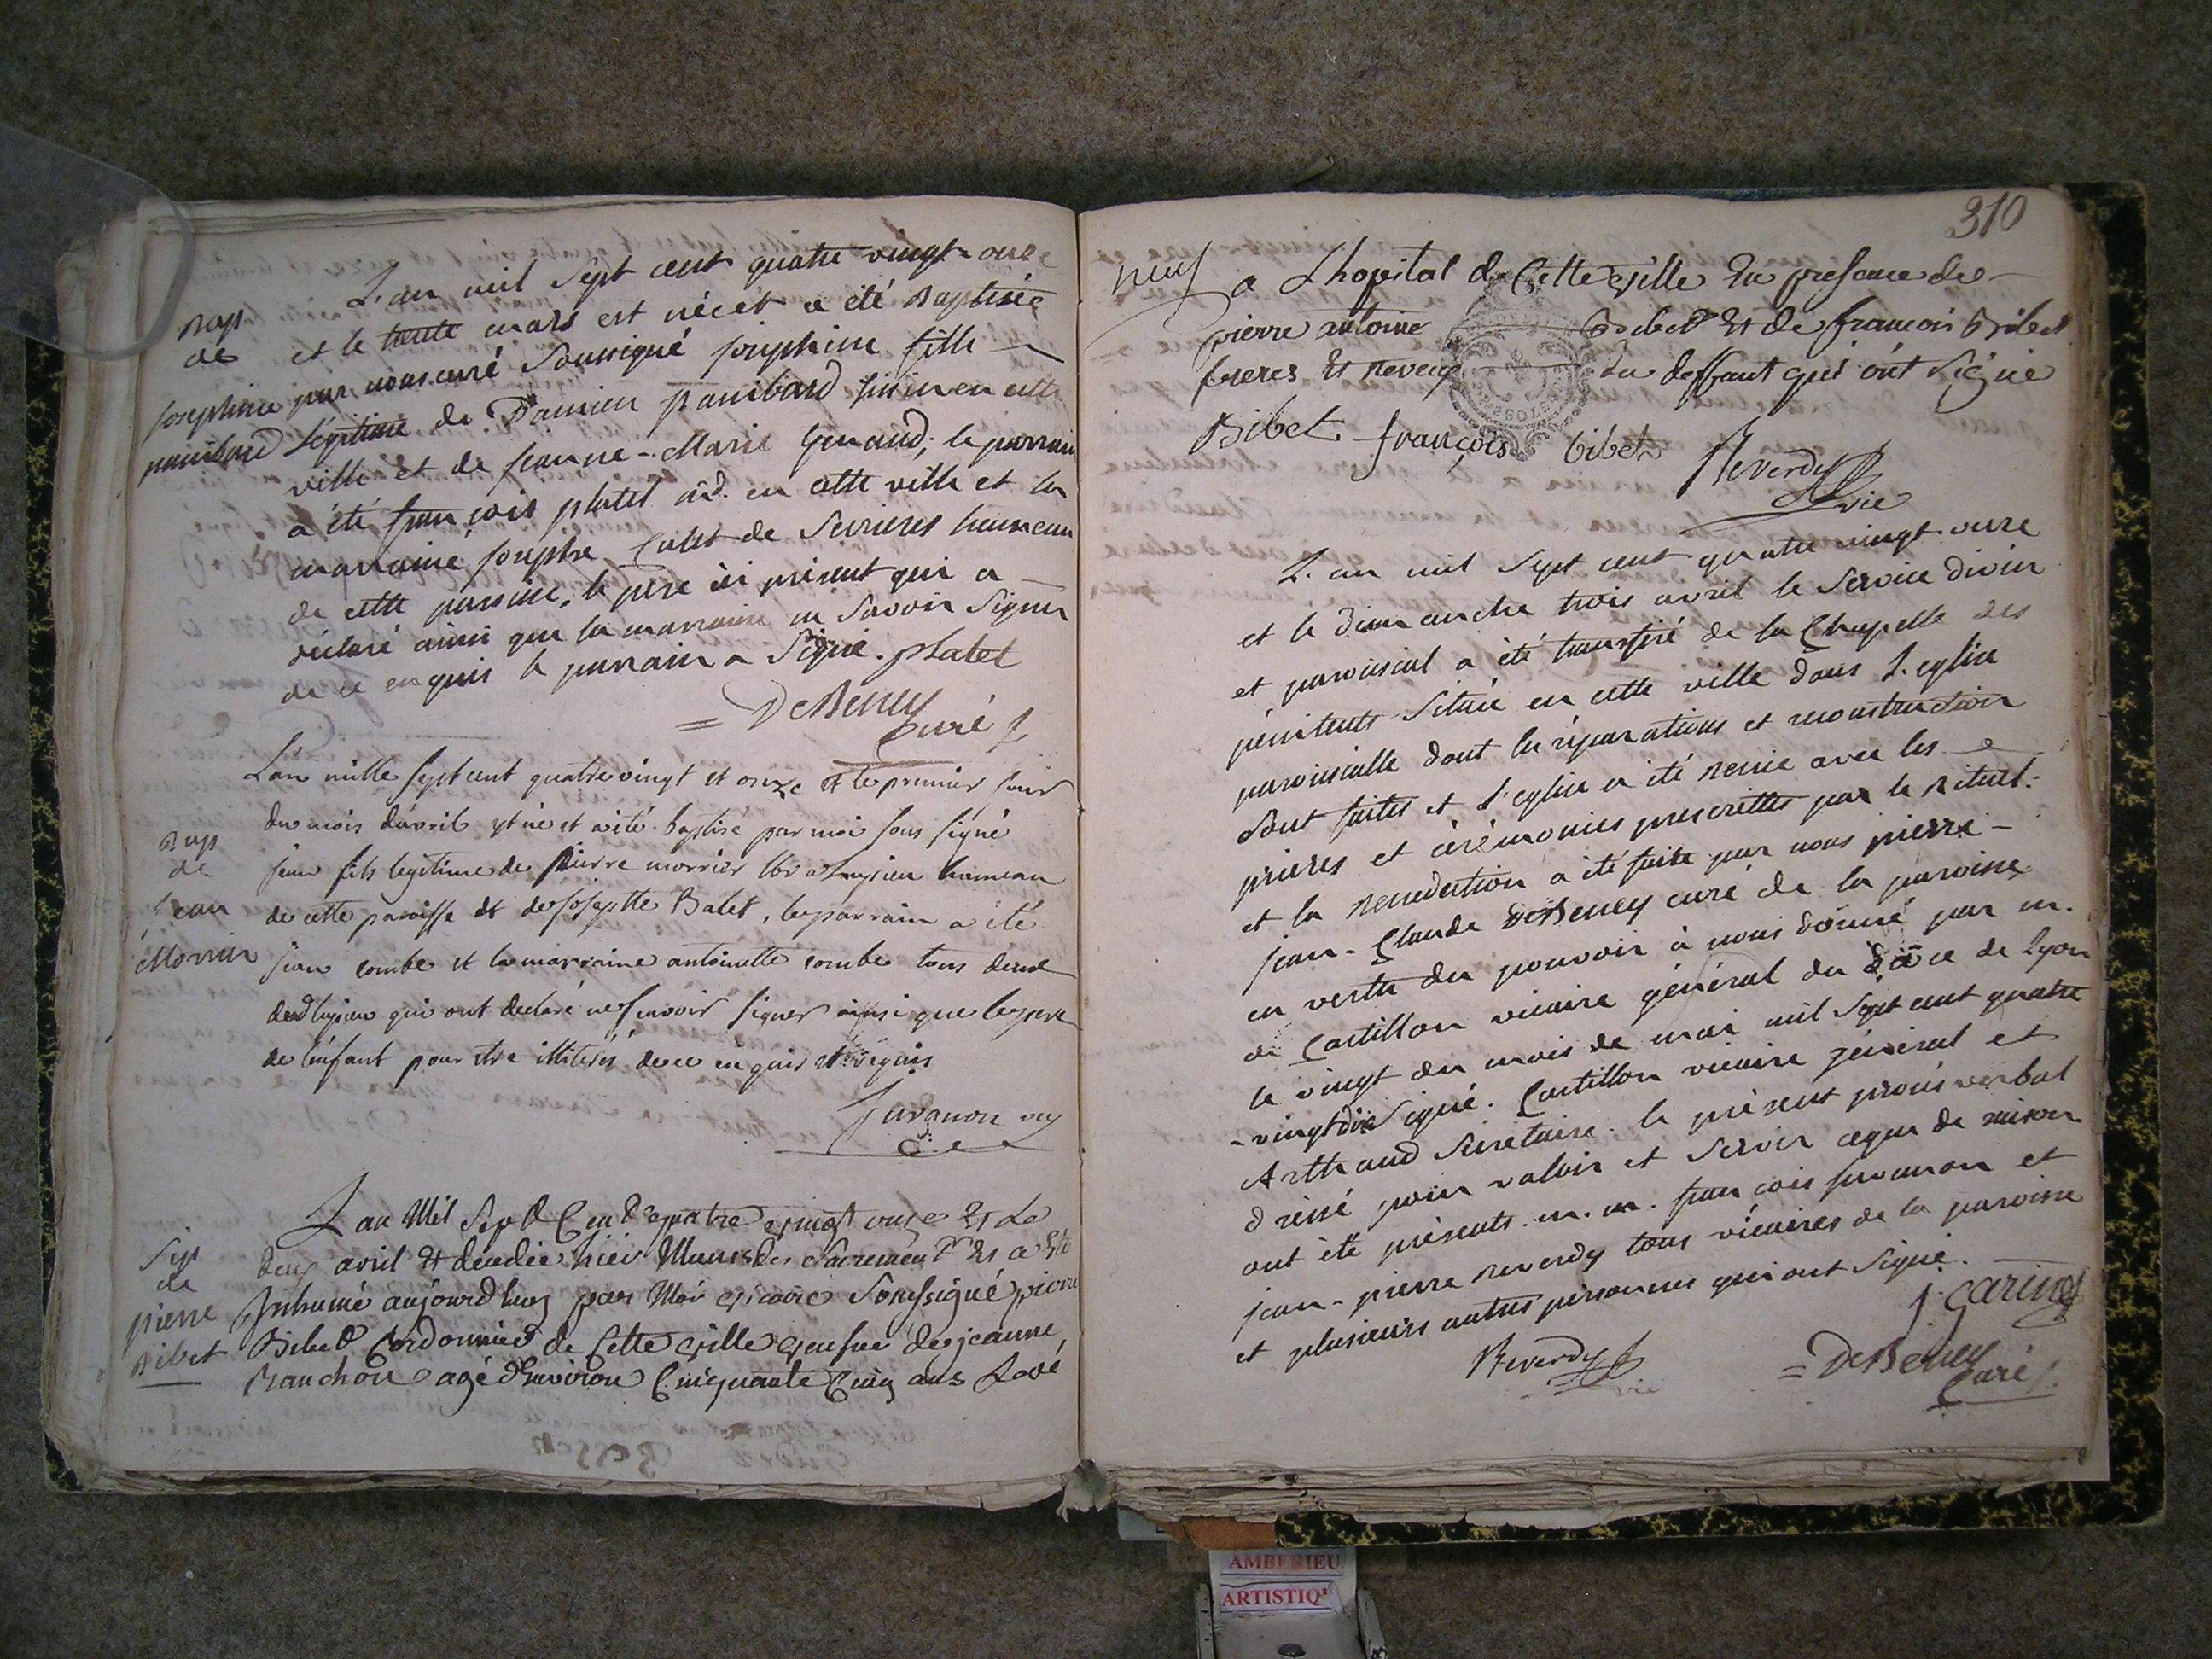 L'an mil sept cent quatre vingt-onze
Bap
de
et le trente mars est née et a été Baptisée
Josephine
par nous curé Soussigné josephine fille
panibard
légitime de Damien panibard in en cette
ville et de jeanne-Marie guenaud; le parrain
a été françois platel md. en cette ville et la
marraine josephte Calet de Serrieres hameau
de cette paroisse, le pere ici présent qui a
déclaré ainsi que la marraine ne savoir Signer
de ce enquis le parrain a Signé. platel
= DeBeney
Curé
L'an mille sept cent quatre vingt et onze et le premier jour
du mois d'avril est né et a été baptisé par moi sous signé
Bap
de
Jean
Morrier
jean fils legitime de pierre morrier hameau
de cette paroisse et de josephte Balet, le parrain a été
jean combe et la marraine antoinette combe tous deux
qui ont declaré ne savoir signer ainsi que le pere
de l'enfant pour etre illiterés de ce enquis et requis
Juvanon vic
L'an Mil Sept Cent quatre vingt onze Et Le
Sep
de
pierre
Bibet
deux avril Et décédé hier Munis des Sacrement Et a Eté
Inhumé aujourd'huy par Moi vicaire Soussigné pierre
Bibet Cordonnier de Cette ville veuf de jeanne
Ranchon agé d'Environ Cinquante Cinq ans Lové
310
neuf a Lhopital de Cette ville En presence de
pierre antoine Bibet Et de francois Bibet
freres Et neveu du deffant qui ont Signé
Bibet françois bibet Reverdy
vic
L'an mil Sept cent quatre vingt-onze
et le dimanche trois avril le Service divin
et paroissial a été transferé de la Chapelle des
pénitents Située en cette ville dans L'eglise
paroissialle dont les réparations et reconstruction
Sont faites et L'eglise a été Benie avec les
prieres et cérémonies prescrittes par le Rituel.
et la Benediction a été faite par nous pierre-
jean-Claude DeBeney curé de la paroisse
en vertu du pouvoir à nous donné par m.
de Castillon vicaire général du diocè de Lyon
le vingt du mois de mai mil Sept cent quatre
-vingt dix Signé. Castillon vicaire général et
Arthaud Secretaire. le présent procès verbal
dressé pour valoir et Servir ceque de raison
ont été présents. m. m. françois juvanon et
jean-pierre Reverdy tous vicaires de la paroisse
et plusieurs autres personnes qui ont Signé.
j. garin
Reverdy
vic
= DeBeney
Curé
AMBERIEU
ARTISTIQ'